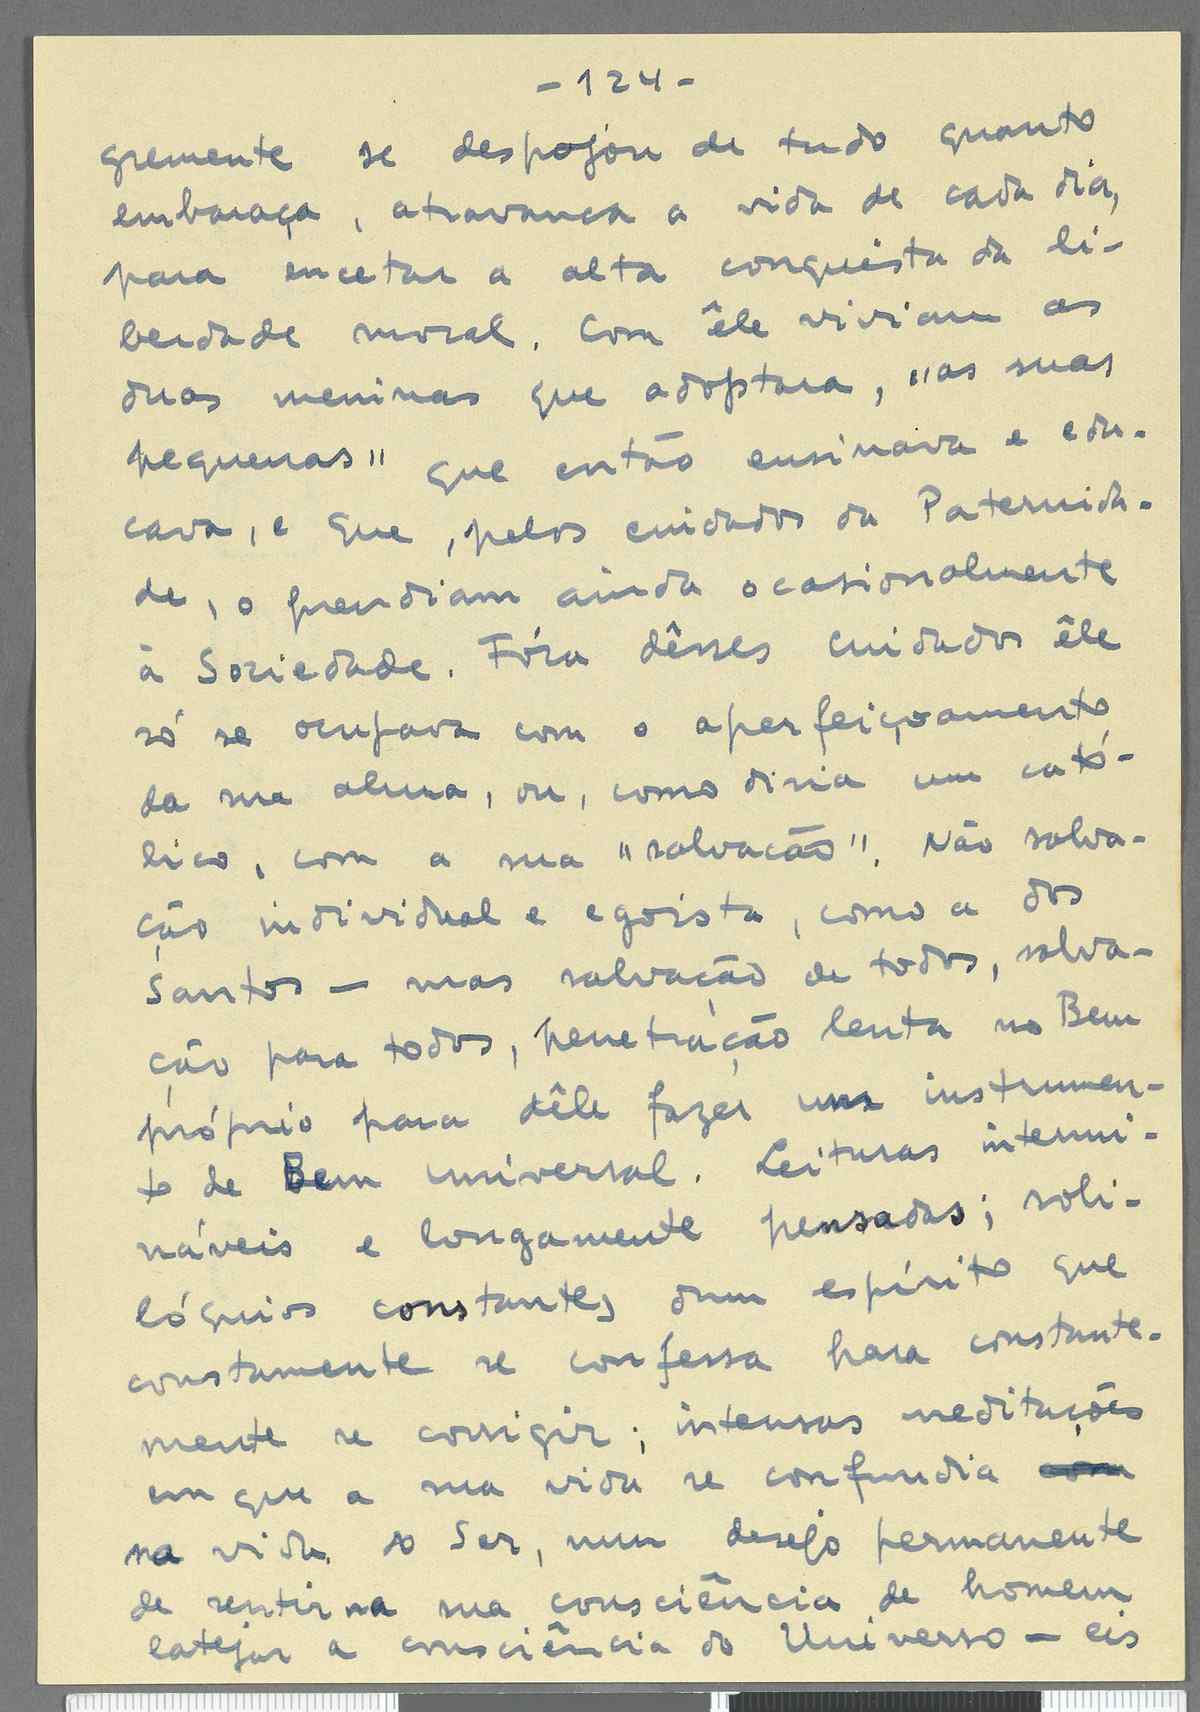 - 124 -
gremente se despojou de tudo quanto
embaraça, atravanca a vida de cada dia,
para encetar a alta conquista da li-
berdade moral. Com êle viviam as
duas meninas que adoptara, "as suas
pequenas" que então ensinava e edu-
cava, e que, pelos cuidados da Paternida-
de, o prendiam ainda ocasionalmente
à Sociedade. Fóra dêsses cuidados êle
só se ocupava com o aperfeiçoamento
da sua alma, ou, como diria um cató-
lico, com a sua "salvacão". Não salva-
ção individual e egoista, como a dos
Santos — mas salvação de todos, salva-
ção para todos, penetração lenta no Bem
próprio para dêle fazer um instrumen-
to de Bem universal. Leituras intermi-
náveis e longamente pensadas; soli-
lóquios constantes dum espírito que
constamente se confessa para constante-
mente se corrigir; intensas meditações
em que a sua vida se confundia com
na vida do Ser, num desejo permanente
de sentir na sua consciência de homem
latejar a consciência do Universo — eis